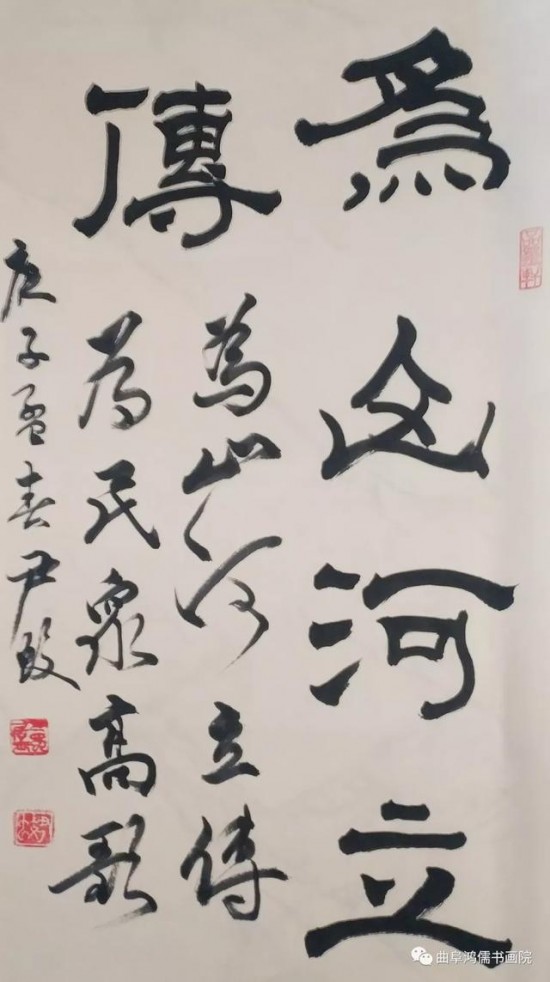 為山河立
傳
為山河立傳
為民眾高歌
庚子孟春尹毅
曲阜鸿儒书画院